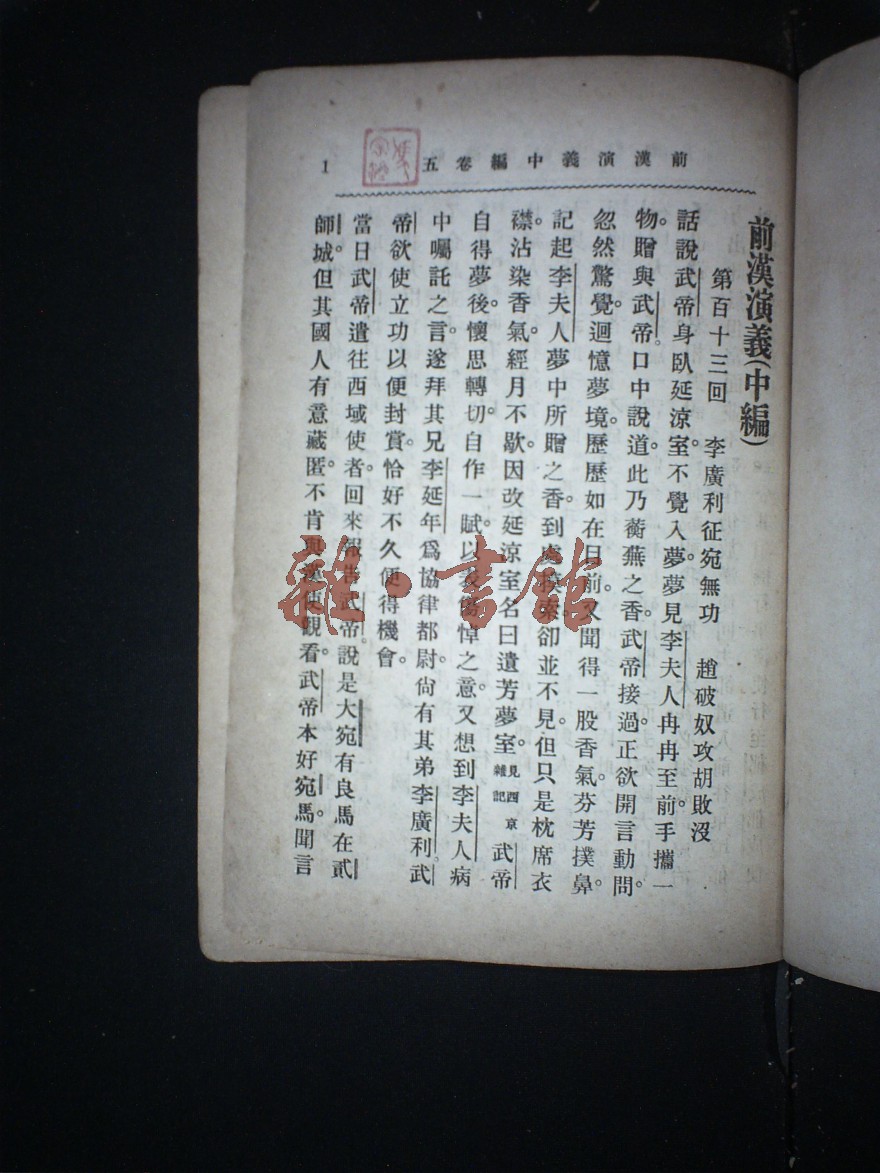 前漢演義中編卷五
1
前漢演義(中編)
第百十三回 李廣利征宛無功 趙破奴攻胡敗沒
話說武帝身臥延涼室。不覺入夢。夢見李夫人冉冉至前。手攜一
物。贈與武帝。口中說道。此乃蘅蕪之香。武帝接過。正欲開言動問。
忽然驚覺。迴憶夢境。歷歷如在目前。又聞得一股香氣。芬芳撲鼻。
記起李夫人夢中所贈之香。到處搜索。卻並不見。但只是枕席衣
襟。沾染香氣。經月不歇。因改延涼室名曰遺芳夢室。見西京雜記 武帝
自得夢後。懷思轉切。自作一賦。以哀傷悼之意。又想到李夫人病
中囑託之言。遂拜其兄李延年爲協律都尉。尙有其弟李廣利。武
帝欲使立功。以便封賞。恰好不久便得機會。
當日武帝遣往西域使者。回來報告武帝。說是大宛有良馬在貳
師城。但其國人有意藏匿。不肯與漢使觀看。武帝本好宛馬。聞言
雜·書館